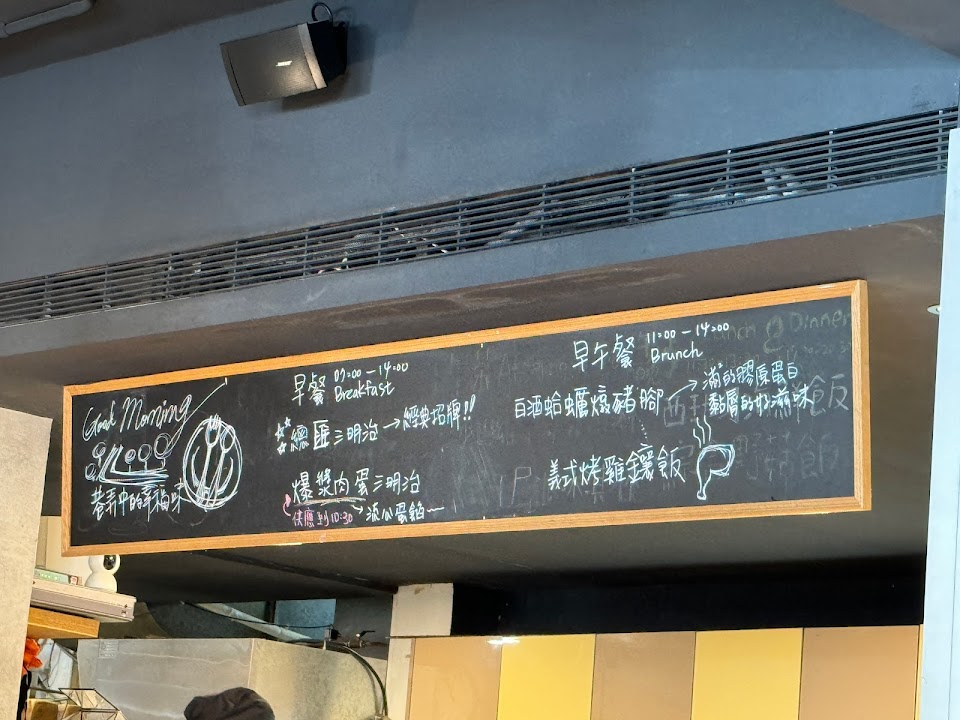 Good Morning
巷弄中的幸福味
早餐 07:00 - 14:00
Breakfast
總匯三明治 → 經典招牌!!
爆漿肉蛋三明治
供應到10:30 → 流心蛋餡～
早午餐 11:00 - 14:00
Brunch
白酒蛤蠣燉豬腳 → 滿滿的膠原蛋白
黏層的好滋味
義式烤雞鑲飯
Dinner
飯
飯